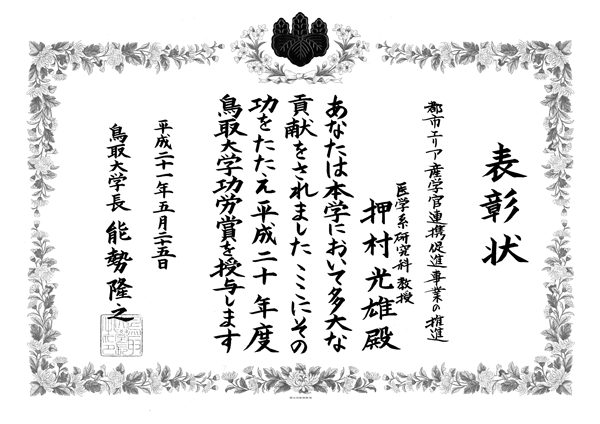 表彰状
都市エリア産学官連携促進事業の推進
医学系研究科教授
押村光雄殿
あなたは本学において多大な
貢献をされましたここにその
功をたたえ平成二十年度
鳥取大学功労賞を授与します
平成二十一年五月二十五日
鳥取大学長 能勢隆之